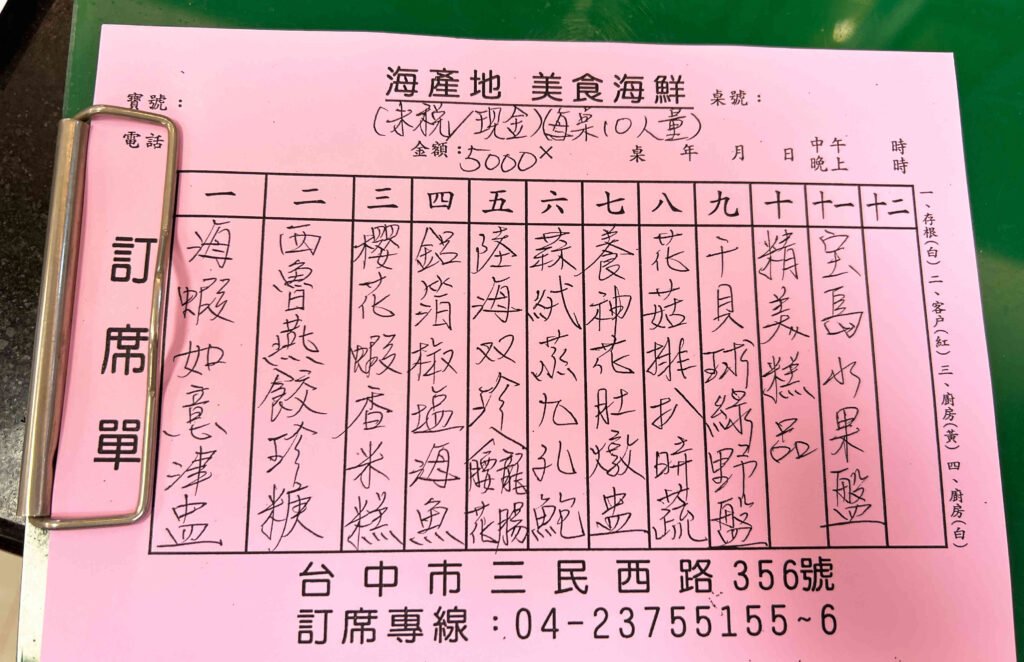 海產地 美食海鮮
寶號：
桌號：
(未稅/現金)(每桌10人量)
電話
金額：5000×
桌 年 月 日 中午 晚上 時 時
訂席單
一 海蝦如意津盅
二 西魯燕餃珍糖
三 櫻花蝦香米糕
四 鋁箔椒塩海魚
五 陸海双珍(腰花 龍腸
六 蒜絨蒸九孔鮑
七 養神花肚燉盅
八 花菇排扒時蔬
九 干貝球綠野盤
十 精美糕品
十一 宝島水果盤
十二
一、存根(白) 二、客户(紅) 三、廚房(黃) 四、廚房(白)
台中市三民西路356號
訂席專線：04-23755155~6